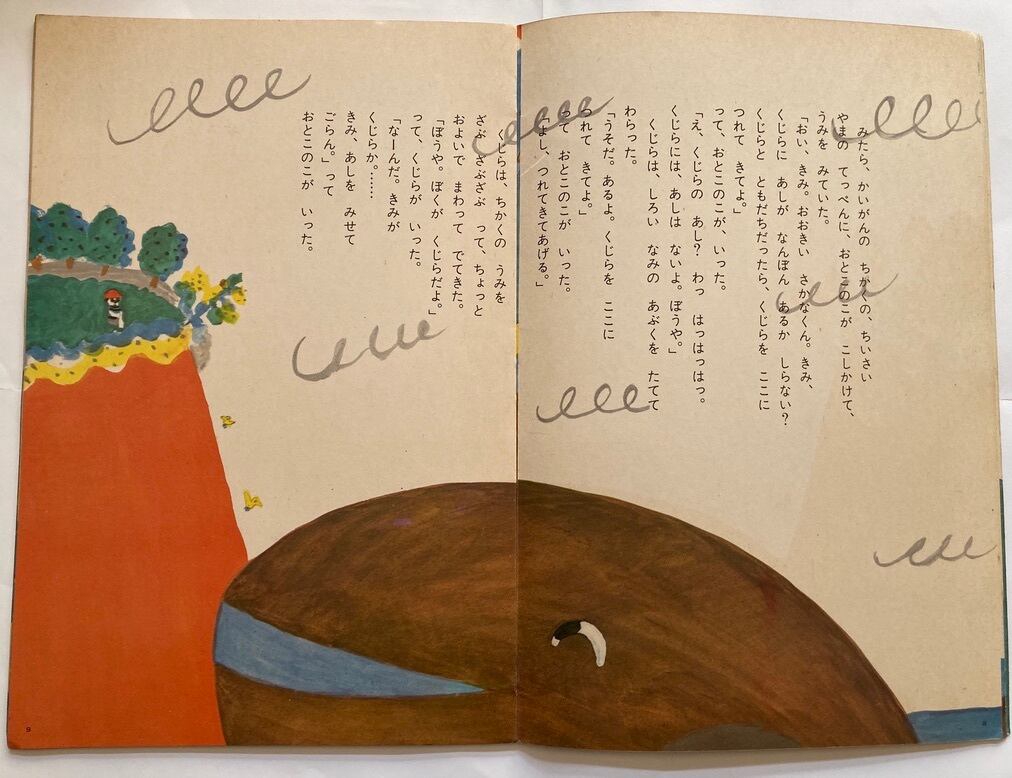 みたら、かいがんの　ちかくの、ちいさい
やまの　てっぺんに、おとこのこが　こしかけて、
うみを　みていた。
「おい、きみ。おおきい　さかなくん。きみ、
くじらに　あしが　なんぼん　あるか　しらない？
くじらと　ともだちだったら、くじらを　ここに
つれて　きてよ」
って、おとこのこが、いった。
「え、くじらの　あし？　わっ　はっはっはっ。
くじらには、あしは　ないよ。ぼうや。」
くじらは、しろい　なみの　あぶくを　たてて
わらった。
「うそだ。あるよ。くじらを　ここに
つれて　きてよ。」
って　おとこのこが　いった。
「よし、つれてきてあげる。」
くじらは、ちかくの　うみを
ざぶ　ざぶざぶ　って、ちょっと
およいで　まわって　でてきた。
「ぼうや。ぼくが　くじらだよ。」
って、くじらが　いった。
「なーんだ。きみが
くじらか。……
きみ、あしを　みせて
ごらん。」って
おとこのこが　いった。
8
9